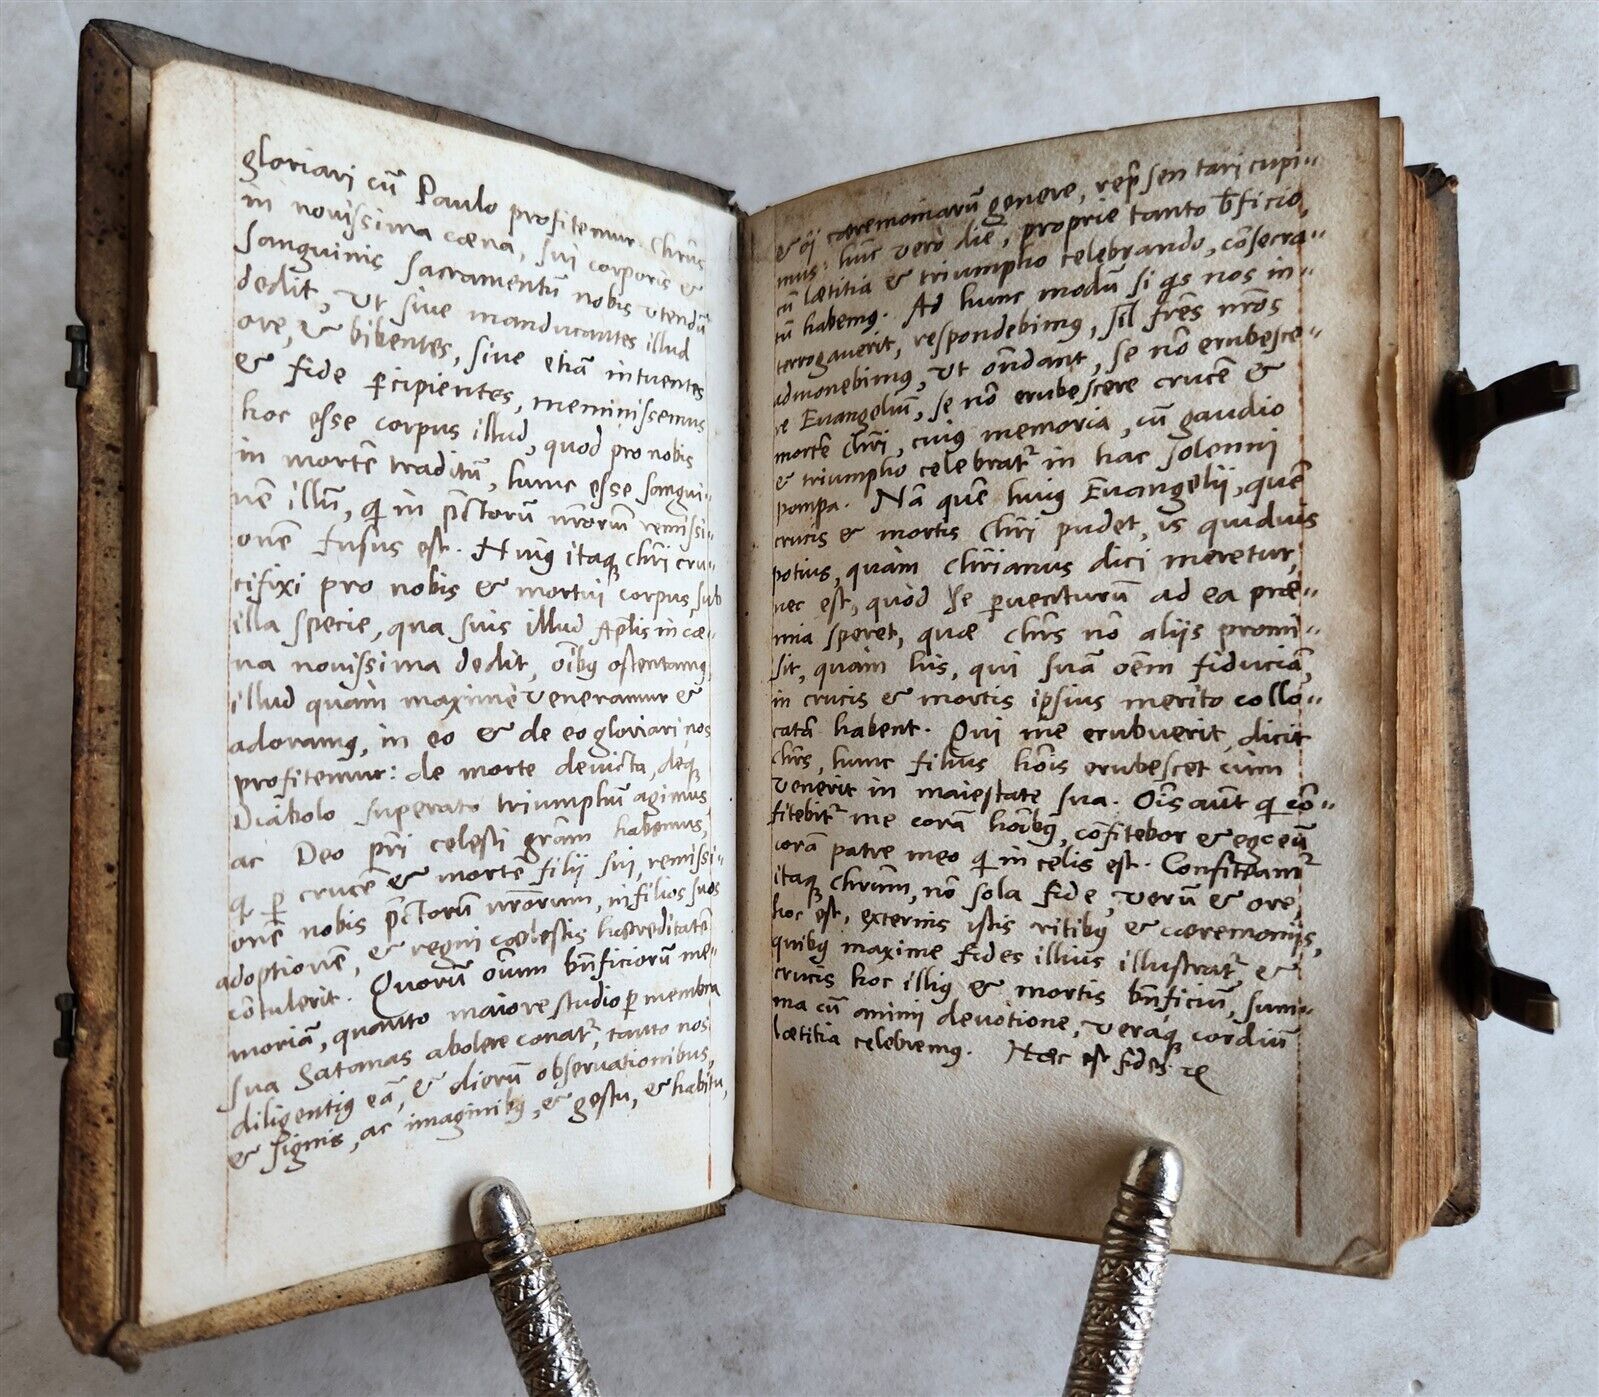 gloriari cũ Paulo profitemur. Chrũs
in novissima cæna, sui corporis &
sanguinis sacramentũ nobis utendũ
dedit, ut sive manducantes illud
ore, & bibentes, sive etiã intuentes
& fide p̄cipientes, meminissemus
hoc esse corpus illud, quod pro nobis
in mortẽ traditũ, hunc esse sangui-
nẽ illũ, q̃ in pc̃torũ nr̃orum remissi-
onẽ fusus est. Huiꝰ itaqꝫ Chr̃i cru-
cifixi pro nobis & mortui corpus, sub
illa specie, qua suis illud Ap̃lis in cæ-
na novissima dedit, oĩbꝰ ostentamꝰ
illud quam maxime veneramur &
adoramꝰ, in eo & de eo gloriari, nos
profitemur: de morte devicta, deqꝫ
Diabolo superato triumphũ agimus,
ac Deo pr̃i celesti gr̃am habemus,
q̃ p̄ crucẽ & mortẽ filij sui, remissi-
onẽ nobis pc̃torũ nr̃orum, in filios suos
adoptionẽ, & regni cœlestis hæreditatẽ
cõtulerit. Quorũ oĩum bñficiorũ me-
moriã, quanto maiore studio p̄ membra
sua Satanas abolere conat̃, tanto nos
diligentiꝰ eã, & dierũ observationibus,
& signis, ac imaginibꝰ, & gestu, & habitu,
& q̃ cæremoniarũ genere, repr̃sentari cupi-
mus. hũc vero diẽ, proprie tanto bñficio,
cũ lætitia & triumpho celebrando, cõsecra-
tũ habemꝰ. Ad hunc modũ si q̃s nos in-
terrogaverit, respondebimꝰ, sil̃ fr̃es nr̃os
admonebimꝰ, ut oñdant, se nõ erubesce-
re Evangeliũ, se nõ erubescere crucẽ &
mortẽ Chr̃i, cuiꝰ memoria, cũ gaudio
& triumpho celebrat̃ in hac solenni
pompa. Nã quẽ huiꝰ Evangelij, quẽ
crucis & mortis Chr̃i pudet, is quiduis
potius, quam Chr̃ianus dici meretur,
nec est, quod se p̄venturũ ad ea præ-
mia speret, quæ Chr̃s nõ aliis promi-
sit, quam his, qui suã oẽm fiduciã,
in crucis & mortis ipsius merito collo-
catã habent. Qui me erubuerit, dicit
Chr̃s, hunc filius hoĩs erubescet cum
venerit in maiestate sua. Oĩs aũt q̃ cõ-
fitebit̃ me corã hoĩbꝰ, cõfitebor & ego eũ
corã patre meo q̃ in celis est. Confiteamur̃
itaqꝫ Chr̃um, nõ sola fide, verũ & ore,
hoc est, externis istis ritibꝰ & cæremoniis,
quibꝰ maxime fides illius illustrat̃ &
crucis hoc illiꝰ & mortis bñficiũ, sum-
ma cũ animi devotione, veraqꝫ cordiũ
lætitia celebremꝰ. Hæc est fides. &c